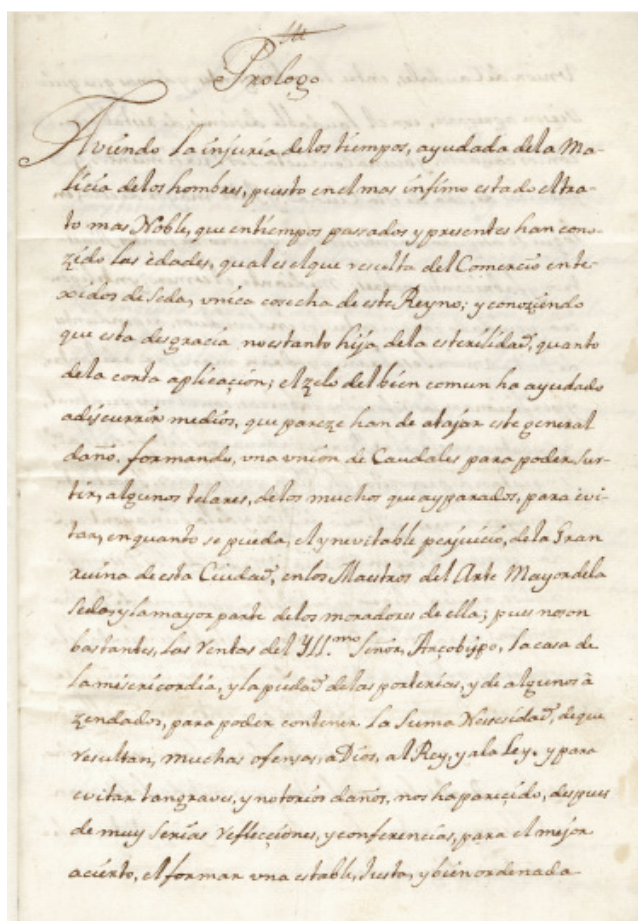 Prologo
Aviendo la injuria delos tiempos, ayudada dela Ma-
licia delos hombres, puesto enel mas infimo estado eltra-
to mas Noble, que entiempos passados y presentes han cono-
zido las edades, qual es elque resulta del Comercio ente-
xidos de seda, vnica cosecha de este Reyno; y conoziendo
que esta desgracia noestanto hija dela esterilidad, quanto
dela corta aplicacion; el zelo del bien comun ha ayudado
adiscurrir medios, que pareze han de atajar este general
daño, formando, vna vnion de Caudales para poder sur-
tir, algunos telares, delos muchos que ay parados, para evi-
tar, en quanto se pueda, el ynevitable perjuicio, dela Gran
ruina de esta Ciudad, enlos Maestros del Arte Mayor dela
seda, y la mayor parte delos moradores de ella; pues noson
bastantes, las Rentas del Yll.mo Señor, Arçobispo, la casa de
la misericordia, y la piedad delas porterias, y de algunos a
zendados, para poder contener la suma Nessesidad, de que
resultan, muchas ofensas, a Dios, al Rey, y ala Ley. y para
evitar tangraves, y notorios daños, nos ha pareçido, despues
de muy serias reflecciones, y conferencias, para el mejor
acierto, el formar vna estable, Justa, y bien ordenada